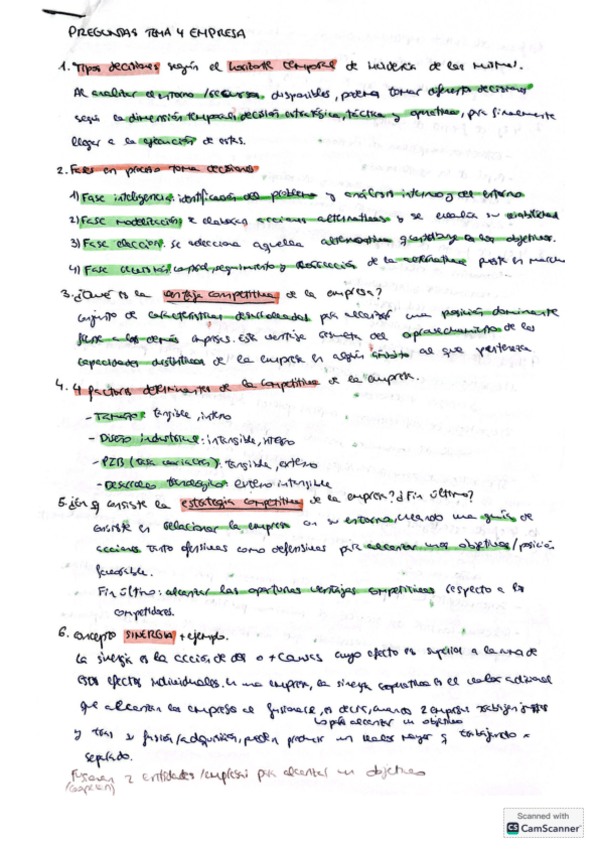 PREGUNTAS TEMA 4 EMPRESA
1. Tipos decisiones según el horizonte temporal de de las mismas.
Al analizar el entorno / recursos disponibles, podemos tomar diferentes decisiones
según la dimensión temporal: decisión estratégica, táctica y operativa, para finalmente
llegar a la obtención de estos.
2. Fases en proceso toma decisiones
1) Fase inteligencia: identificación del problema y análisis interno y del entorno
2) Fase modelización: se elaboran acciones alternativas y se evalúa su viabilidad
3) Fase elección: se selecciona aquella alternativa q contribuye a los objetivos.
4) Fase control, seguimiento y de la alternativa puesta en marcha
3. ¿Qué es la ventaja competitiva de la empresa?
Conjunto de características desarrolladas para alcanzar una posición dominante
frente a las demás empresas. Esta ventaja del aprovechamiento de las
capacidades distintivas de la empresa en algún ámbito al que pertenezca
4. 4 factores determinantes de la competitiva de la empresa.
- Tamaño: tangible, interno
- Diseño industrial: intangible, interno
- PIB (tasa variación): tangible, externo
- Desarrollo tecnológico: externo intangible
5. ¿En q consiste la estrategia competitiva de la empresa? ¿Fin último?
Consiste en relacionar la empresa con su entorno, creando una guía de
acciones tanto ofensivas como defensivas para alcanzar unos objetivos / posición
favorable.
Fin último: alcanzar las oportunas ventajas competitivas respecto a los
competidores.
6. Concepto SINERGIA + ejemplo.
La sinergia es la acción de dos o + causas cuyo efecto es superior a la suma de
esos efectos individuales. En una empresa, la sinergia es el valor adicional
que alcanzan las empresas al fusionarse, es decir, cuando 2 empresas trabajan juntas
para alcanzar un objetivo
y tras su fusión/adquisición, pueden producir un valor mayor q trabajando x
separado.
Fusionan 2 entidades / empresas para alcanzar un objetivo
Scanned with
CS CamScanner